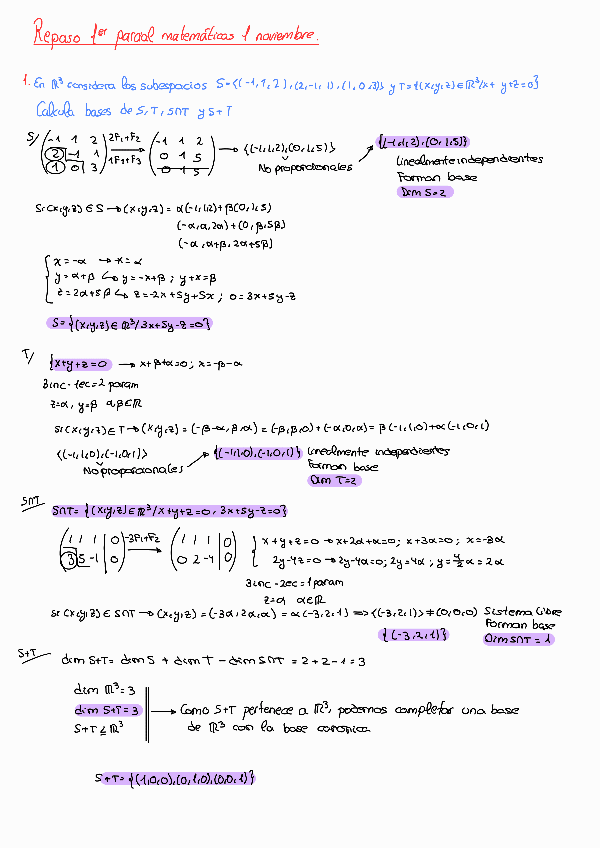 Repaso 1er parcial matemáticas 1 noviembre.
1. En ℝ³ considera los subespacios S=⟨(-1,1,2),(2,-1,1),(1,0,3)⟩ y T={(x,y,z)∈ℝ³/x+y+z=0}
Calcula bases de S, T, S∩T y S+T
S/ (-1 1 2 2F1+F2 (-1 1 2 → ⟨(-1,1,2),(0,1,5)⟩ {(-1,1,2),(0,1,5)}
2 -1 1 0 1 5 No proporcionales Linealmente independientes
1 0 3) 1F1+F3 0 1 5) Forman base
Dim S=2
Si (x,y,z)∈S → (x,y,z) = α(-1,1,2)+β(0,1,5)
(-α,α,2α)+(0,β,5β)
(-α,α+β,2α+5β)
{ x=-α → -x=α
y=α+β ↪ y=-x+β; y+x=β
z=2α+5β ↪ z=-2x+5y+5x; 0=3x+5y-z
S={(x,y,z)∈ℝ³/3x+5y-z=0}
T/ {x+y+z=0 → x+β+α=0; x=-β-α
3inc-1ec=2 param
z=α, y=β α,β∈ℝ
Si (x,y,z)∈T → (x,y,z)=(-β-α,β,α)=(-β,β,0)+(-α,0,α)=β(-1,1,0)+α(-1,0,1)
⟨(-1,1,0),(-1,0,1)⟩ {(-1,1,0),(-1,0,1)} Linealmente independientes
No proporcionales Forman base
Dim T=2
S∩T
S∩T={(x,y,z)∈ℝ³/x+y+z=0, 3x+5y-z=0}
(1 1 1 | 0 -3F1+F2 (1 1 1 | 0 { x+y+z=0 → x+2α+α=0; x+3α=0; x=-3α
3 5 -1 | 0) 0 2 -4 | 0) 2y-4z=0 → 2y-4α=0; 2y=4α; y=4/2α=2α
3inc-2ec=1 param
z=α α∈ℝ
Si (x,y,z)∈S∩T → (x,y,z)=(-3α,2α,α)=α(-3,2,1) ⇒ ⟨(-3,2,1)⟩≠(0,0,0) Sistema libre
{(-3,2,1)} Forman base
Dim S∩T=1
S+T
dim S+T= dim S + dim T - dim S∩T = 2+2-1=3
dim ℝ³=3
dim S+T=3 → Como S+T pertenece a ℝ³, podemos completar una base
S+T≤ℝ³ de ℝ³ con la base canonica.
S+T={(1,0,0),(0,1,0),(0,0,1)}